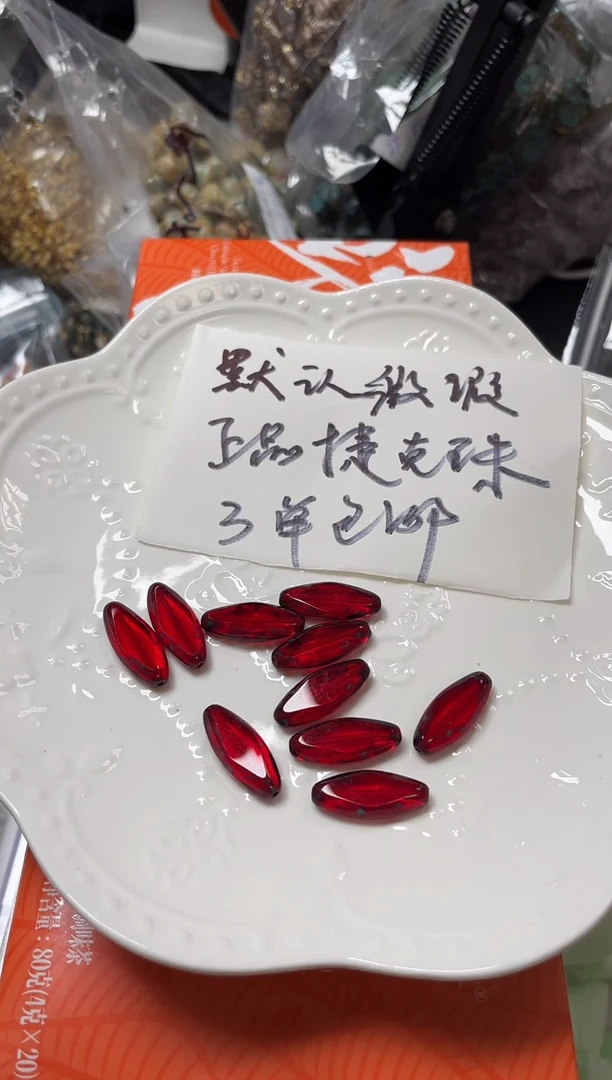 默认微瑕
正品捷克珠
3单包邮
含量：80克(4克×20)
味茶